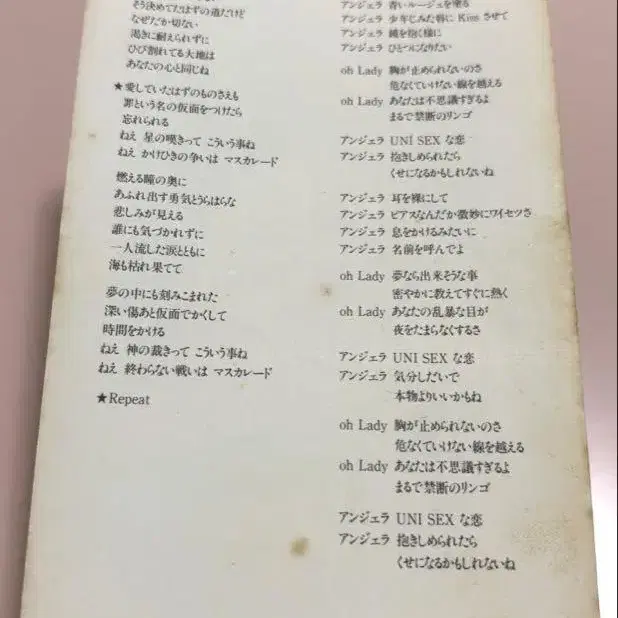 そう決めてたはずの道だけど
なぜだか切ない
渇きに耐えられずに
ひび割れてる大地は
あなたの心と同じね
★愛していたはずのものさえも
罪という名の仮面をつけたら
忘れられる
ねえ 星の嘆きって こういう事ね
ねえ かけひきの争いは マスカレード
燃える瞳の奥に
あふれ出す勇気とうらはらな
悲しみが見える
誰にも気づかれずに
一人流した涙とともに
海も枯れ果てて
夢の中にも刻みこまれた
深い傷あと仮面でかくして
時間をかける
ねえ 神の裁きって こういう事ね
ねえ 終わらない戦いは マスカレード
★Repeat
アンジェラ 青いルージュを塗る
アンジェラ 少年じみた唇に Kiss させて
アンジェラ 鏡を抱く様に
アンジェラ ひとつになりたい
oh Lady 胸が止められないのさ
危なくていけない線を越える
oh Lady あなたは不思議すぎるよ
まるで禁断のリンゴ
アンジェラ UNI SEX な恋
アンジェラ 抱きしめられたら
くせになるかもしれないね
アンジェラ 耳を裸にして
アンジェラ ピアスなんだか微妙にワイセツさ
アンジェラ 息をかけるみたいに
アンジェラ 名前を呼んでよ
oh Lady 夢なら出来そうな事
密やかに教えてすぐに熱く
oh Lady あなたの乱暴な目が
夜をたまらなくするさ
アンジェラ UNI SEX な恋
アンジェラ 気分しだいで
本物よりいいかもね
oh Lady 胸が止められないのさ
危なくていけない線を越える
oh Lady あなたは不思議すぎるよ
まるで禁断のリンゴ
アンジェラ UNI SEX な恋
アンジェラ 抱きしめられたら
くせになるかもしれないね